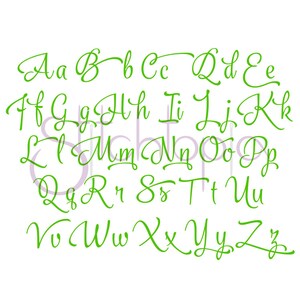 Aa Bb Cc Dd Ee
Ff Gg Hh Ii Jj Kk
Ll Mm Nn Oo Pp
Qq Rr Ss Tt Uu
Vv Ww Xx Yy Zz
Stitchtopia